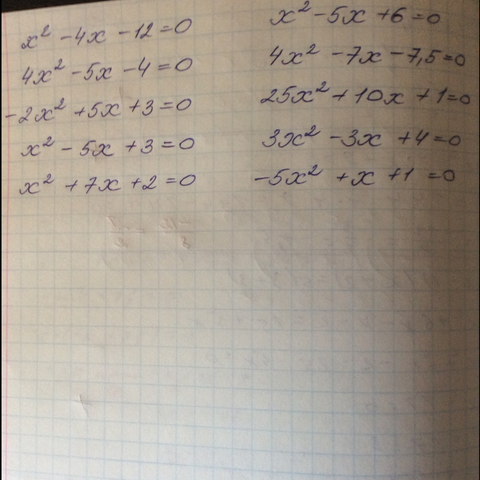 x² - 4x - 12 = 0
4x² - 5x - 4 = 0
-2x² + 5x + 3 = 0
x² - 5x + 3 = 0
x² + 7x + 2 = 0
x² - 5x + 6 = 0
4x² - 7x - 7,5 = 0
25x² + 10x + 1 = 0
3x² - 3x + 4 = 0
-5x² + x + 1 = 0